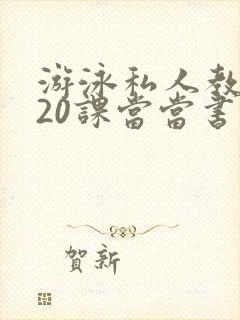 游泳私人教
20課當當書
賀新